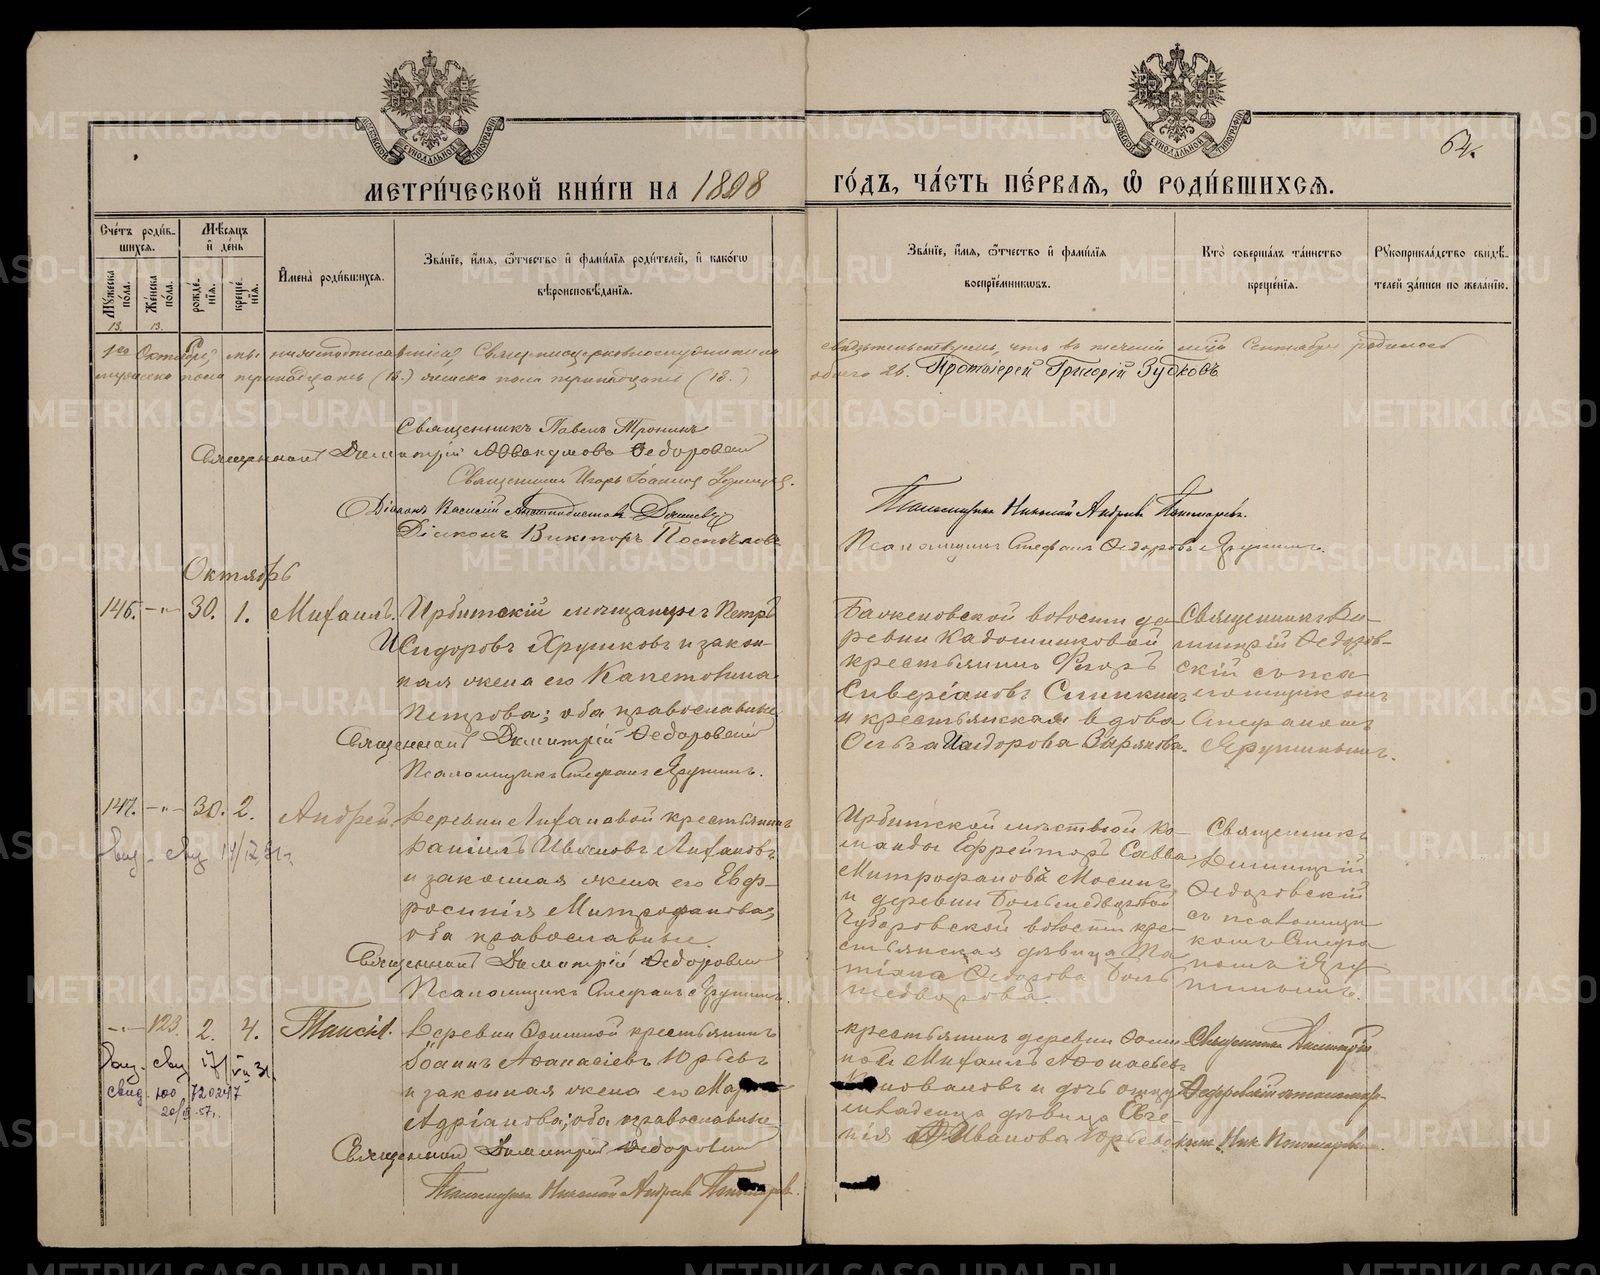 МЕТРИ́ЧЕСКОЙ КНИ́ГИ НА 1898
ГО́ДЪ, ЧА́СТЬ ПЕ́РВАѦ, Ѡ РОДИ́ВШИХСѦ.
64.
Сче́тъ роди́вшихсѧ.
Мꙋ́жеска по́ла.
Же́нска по́ла.
Мѣ́сѧцъ и́ де́нь
рожде́нїѧ.
креще́нїѧ.
И҆мена̀ роди́вшихсѧ.
Зва́нїе, и҆́мѧ, ѻ҆́тчество и҆ фами́лїѧ роди́телей, и҆ како́гѡ
вѣроисповѣ́данїѧ.
Зва́нїе, и҆́мѧ, ѻ҆́тчество и҆ фами́лїѧ
воспрїе́мникѡвъ.
Кто̀ соверша́лъ та́инство
креще́нїѧ.
Рꙋкоприкла́дство свидѣ́телей за́писи по жела́нїю.
13. 13.
1го Октября мы нижеподписавшіеся Священноцерковнослужители
свидѣтельствуемъ, что въ теченіи мѣсяца Сентября родилось
мужеска пола тринадцать (13.) женска пола тринадцать (13.)
обоего 26. Протоіерей Григорій Зубковъ
Священникъ Павелъ Тронинъ
Священникъ Димитрій Аввакумовъ Ѳедоровскій
Священникъ Игорь Іоанновъ
Діаконъ Василій
Діаконъ Викторъ Поспѣловъ
Псаломщикъ Николай Андреевъ Пономаревъ.
Псаломщикъ Стефанъ Ѳедоровъ Ярушинъ.
Октябрь
146. -"- 30. 1. Михаилъ.
Ирбитскій мѣщанинъ Петръ
Исидоровъ Хрушковъ и закон-
ная жена его Капетолина
Петрова; оба православные
Священникъ Димитрій Ѳедоровскій
Псаломщикъ Стефанъ Ярушинъ.
Баженовской волости де
ревни Кадошниковой
крестьянинъ Егоръ
Сиверіановъ Ситкинъ
и крестьянская вдова
Ольга Исидорова Вырянова.
Священникъ Ди-
митрій Ѳедоров-
скій съ пса
ломщикомъ
Стефаномъ
Ярушинымъ.
147. -"- 30. 2. Андрей.
Деревни Лихановой крестьянинъ
Даніилъ Ивановъ Лихановъ
и законная жена его Евф-
росинія Митрофанова;
оба православные.
Священникъ Димитрій Ѳедоровскій
Псаломщикъ Стефанъ Ярушинъ.
Ирбитской мѣстной ко-
манды Ефрейторъ Савва
Митрофановъ Мосинъ
и деревни Большедворовой
Чубаровской волости кре-
стьянская дѣвица Та
тіана Ѳедорова Боль
шедворова.
Священникъ
Димитрій
Ѳедоровскій
съ псаломщи
комъ Стефа
номъ Яру
шинымъ.
-"- 123. 2. 4. Таисія.
Деревни Ѳоминой крестьянинъ
Іоаннъ Аѳанасіевъ Юрьевъ
и законная жена его
Адріанова; оба православные
Священникъ Димитрій Ѳедоровскій
Псаломщикъ Николай Андреевъ Пономаревъ.
крестьянинъ деревни Ѳоми
ной Михаилъ Аѳонасьевъ
Коноваловъ и дочь отца
младенца дѣвица Евге-
нія Иванова Юрьева
Священникъ Димитрій
Ѳедоровскій
Ник Пономаревъ.
свид. юо 720247